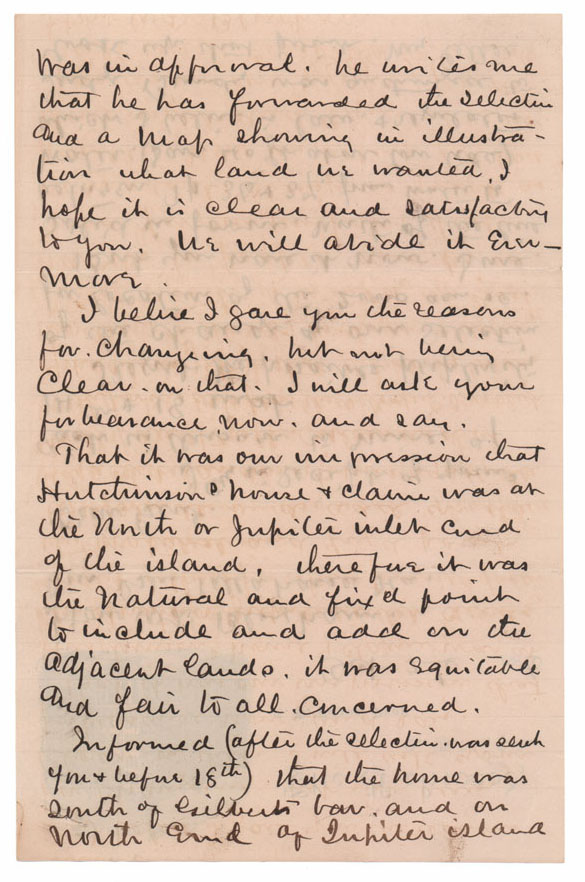 was in approval. he writes me
that he has forwarded the selectin
and a map showing in illustra-
tion what land we wanted. I
hope it is clear and satisfactory
to you. We will abide it Ever-
more.
I belive I gave you the reasons
for. changeing. but not being
Clear. on that. I will ask your
forbearance now. and say.
That it was our impression that
Hutchinsons house & claim was at
the North or Jupiter inlet end
of the island, therefore it was
the Natural and fixed point
to include and add on the
adjacent lands. it was Equitable
and fair to all. concerned.
Informed (after the selectin was sent
you & before 18th) that the home was
South of Gilberts bar. and on
North End of Jupiter island